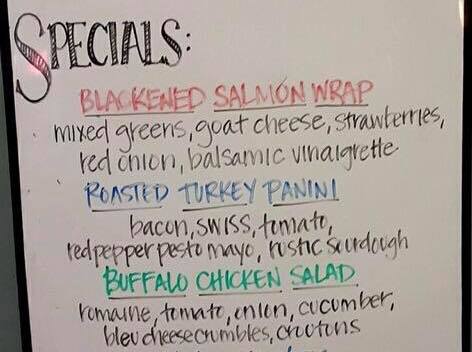 SPECIALS:
BLACKENED SALMON WRAP
mixed greens, goat cheese, strawberries,
red onion, balsamic vinaigrette
ROASTED TURKEY PANINI
bacon, swiss, tomato,
red pepper pesto mayo, rustic sourdough
BUFFALO CHICKEN SALAD
romaine, tomato, onion, cucumber,
bleu cheese crumbles, croutons